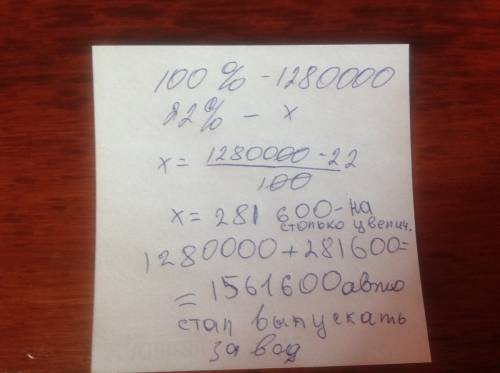 100 % - 1280000
22% - x
x = 1280000 · 22
100
x = 281 600 - на
столько увелич.
1280000 + 281600 =
= 1561600 авто
стал выпускать
завод